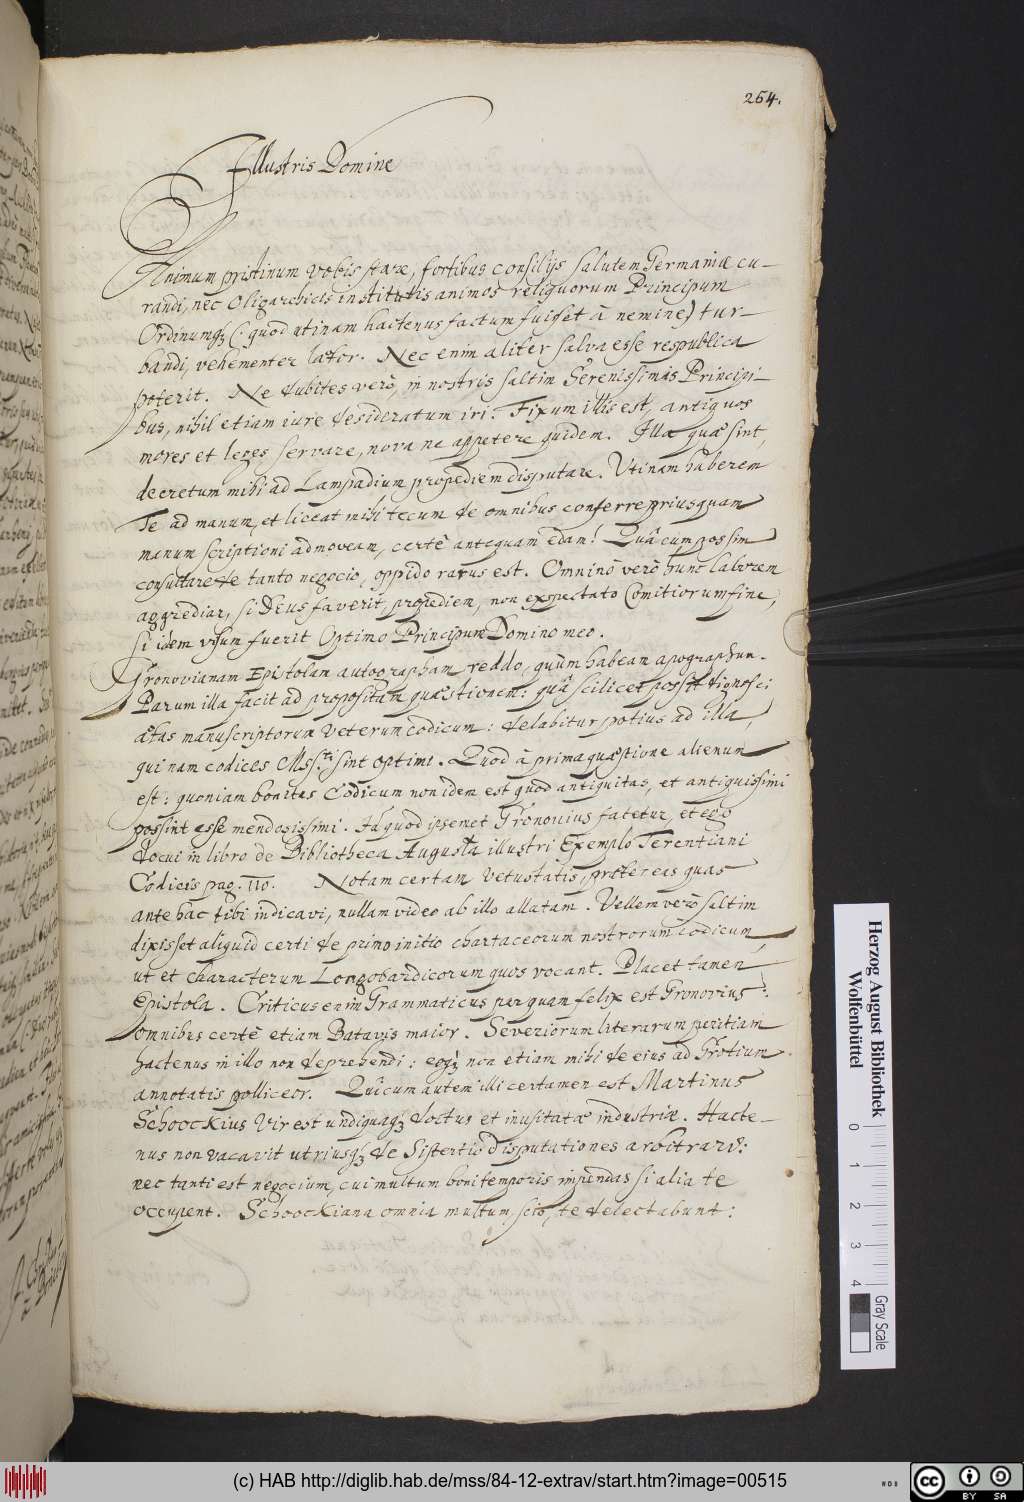 264.
Illustris Domine
Animum pristinum Vobis stare, fortibus consilijs salutem Germaniæ cu-
randi, nec Oligarchicis institutis animos reliquorum Principum
Ordinumq; (quod utinam hactenus factum fuisset à nemine) tur-
bandi, vehementer lætor. Nec enim aliter salva esse respublica
poterit. Ne dubites verò, in nostris saltim Serenissimis Principi-
bus, nihil etiam iure desideratum iri. Fixum illis est, antiquos
mores et leges servare, nova ne appetere quidem. Illa quæ sint,
decretum mihi ad Lampadium propediem disputare. Utinam haberem
Te ad manum, et liceat mihi tecum de omnibus conferre priusquam
manum scriptioni admoveam, certè antequam edam! Quâcum possim
consultare de tanto negocio, oppido rarus est. Omninò verò hunc laborem
aggrediar, si Deus faverit, propediem, non expectato Comitiorum fine,
si idem visum fuerit Optimo Principum Domino meo.
Gronovianam Epistolam autographam reddo, quùm habeam apographum.
Parum illa facit ad propositam quæstionem: quâ scilicet possit dignosci
ætas manuscriptorum veterum codicum: delabitur potius ad illa,
qui nam codices Mss.ti sint optimi. Quod à prima quæstione alienum
est: quoniam bonitas Codicum non idem est quod antiquitas, et antiquissimi
possint esse mendosissimi. Id quod ipsemet Gronovius fatetur, et ego
docui in libro de Bibliotheca Augusta illustri Exemplo Terentiani
Codicis pag. 110. Notam certam vetustatis, præter eas quas
ante hac tibi indicavi, nullam video ab illo allatam. Vellem verò saltim
dixisset aliquid certi de primo initio chartaceorum nostrorum codicum,
ut et characterum Longobardicorum quos vocant. Placet tamen
Epistola. Criticus enim Grammaticus per quam felix est Gronovius:
omnibus certè etiam Batavis maior. Severiorum literarum peritiam
hactenus in illo non deprehendi: eoq; non etiam mihi de eius ad Grotium
annotatis polliceor. Quicum autem illi certamen est Martinus
Schoockius Vir est undiquaq; doctus et inusitatæ industriæ. Hacte-
nus non vacavit utriusq; de Sistertio disputationes arbitrari:
nec tanti est negocium, cui multum boni temporis impendas si alia te
occupent. Schoockiana omnia multum, scio, te delectabunt:
Herzog August Bibliothek
Wolfenbüttel
0 1 2 3 4
Gray Scale
(c) HAB http://diglib.hab.de/mss/84-12-extrav/start.htm?image=00515
cc BY SA